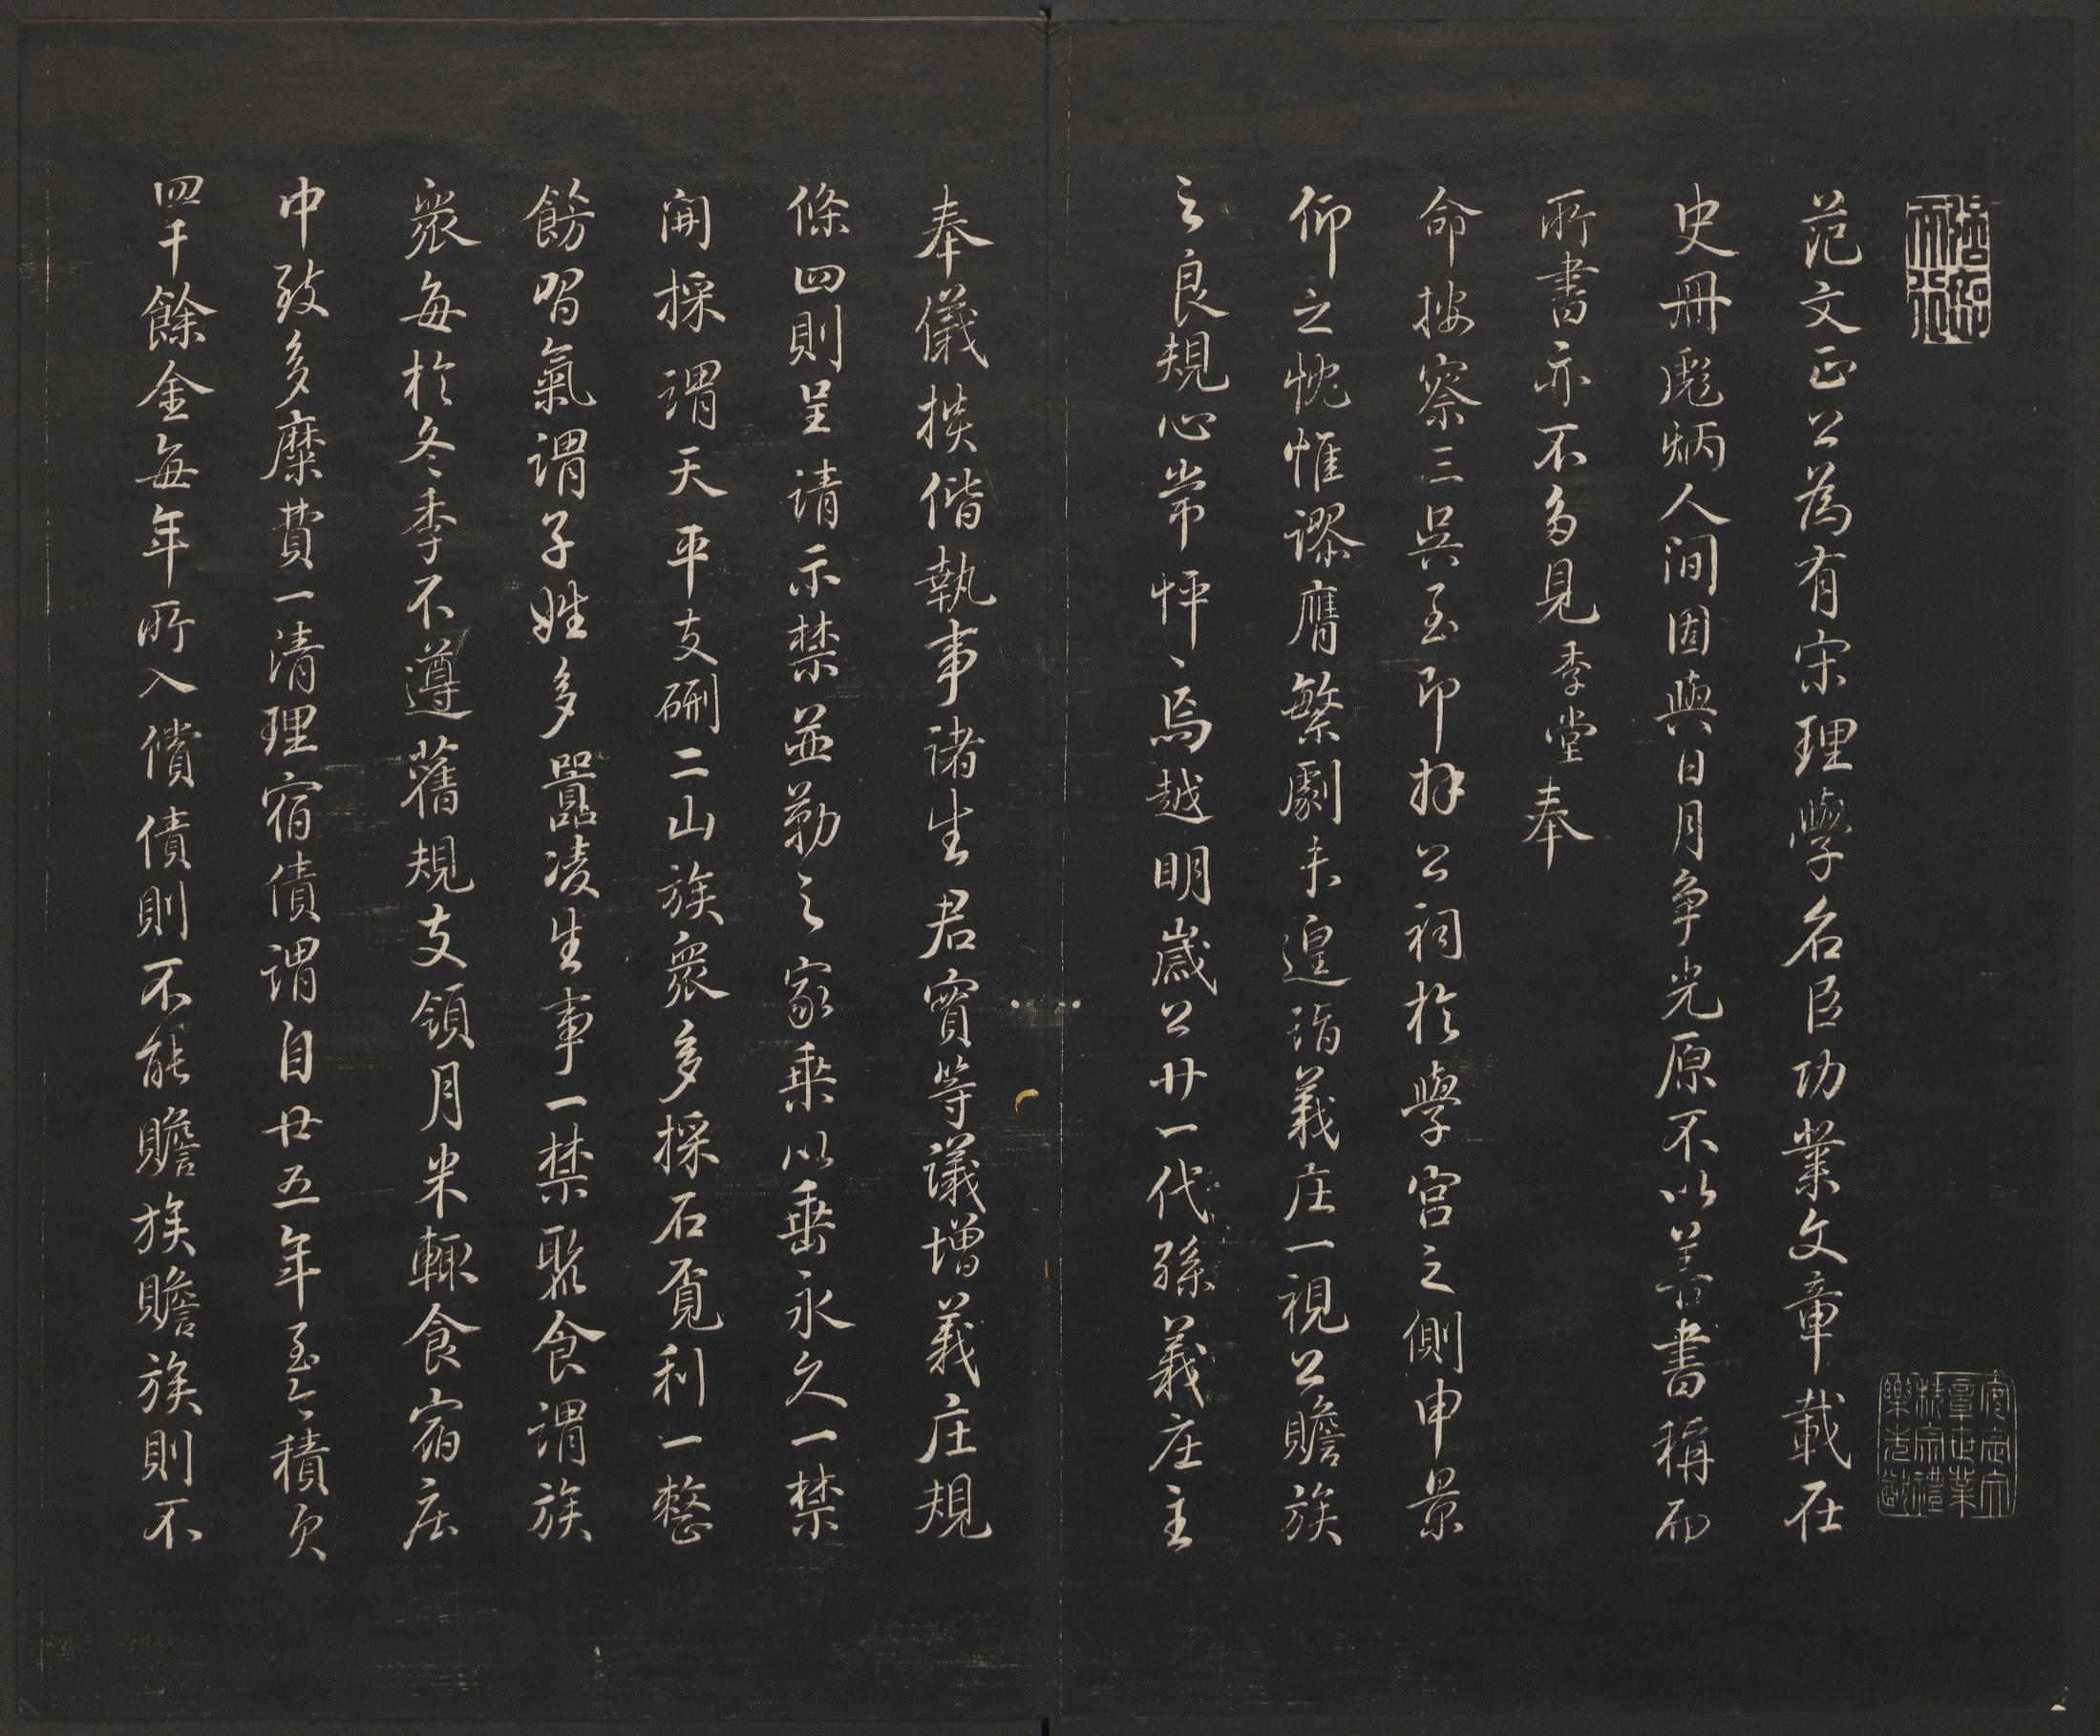 范文正公為有宋理學名臣功業文章載在
史冊彪炳人間固與日月爭光原不以善書稱而
所書亦不多見季堂奉
命按察三吳至即拜公祠於學宮之側申景
仰之忱惟謬膺繁劇未遑詣義庄一視公贍族
之良規心常怦怦焉越明歲公廿一代孫義庄主
奉儀揆偕執事諸生君實等議增義庄規
條四則呈請示禁並勒之家乘以垂永久一禁
開採謂天平支硎二山族眾多採石覓利一整
飭習氣謂子姓多囂凌生事一禁聚食謂族
眾每於冬季不遵舊規支領月米輒食宿庄
中致多糜費一清理宿債謂自廿五年至今積欠
四千餘金每年所入償債則不能贍族贍族則不